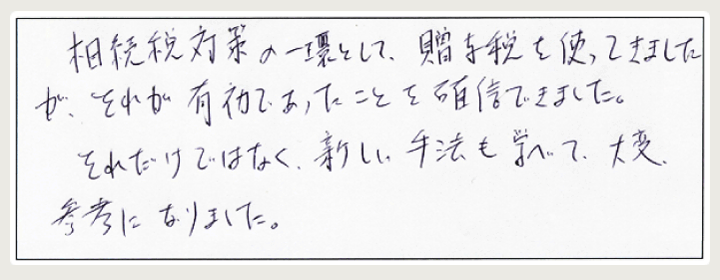 相続税対策の一環として、贈与税を使ってきました
が、それが有効であったことを確信できました。
それだけではなく、新しい手法も学べて、大変、
参考になりました。